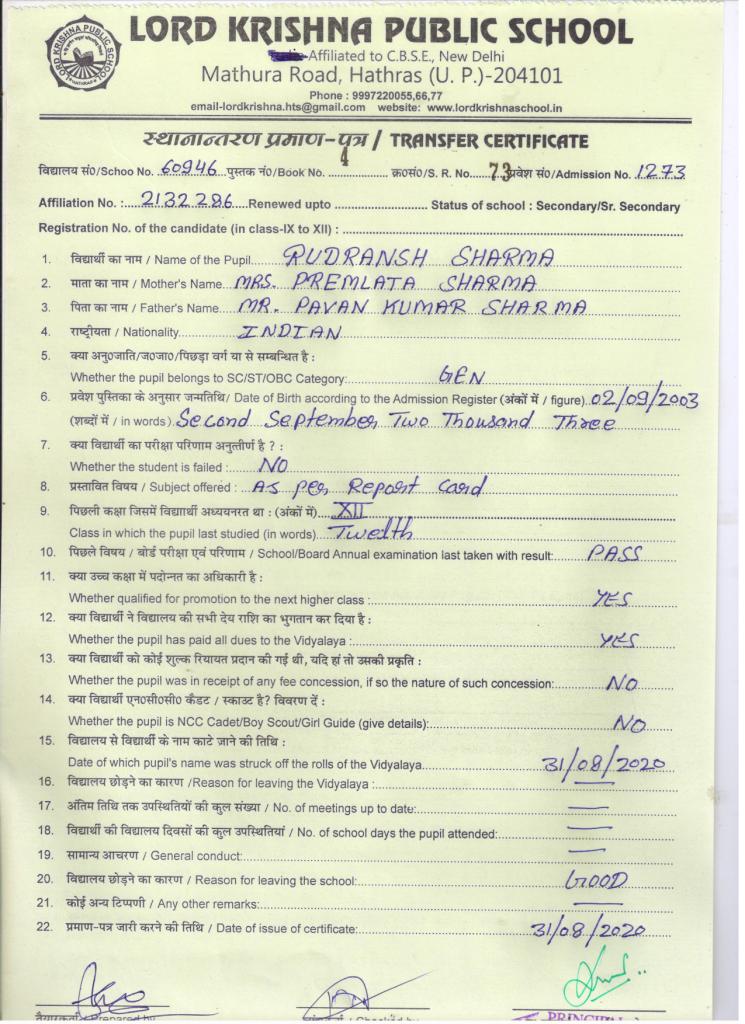 LORD KRISHNA PUBLIC SCHOOL
LORD KRISHNA PUBLIC SCHOOL
Affiliated to C.B.S.E., New Delhi
Mathura Road, Hathras (U. P.)-204101
Phone : 9997220055,66,77
email-lordkrishna.hts@gmail.com website: www.lordkrishnaschool.in
स्थानान्तरण प्रमाण-पत्र / TRANSFER CERTIFICATE
विद्यालय सं०/Schoo No. 60946 पुस्तक नं०/Book No. 4 क्र०सं०/S. R. No. 73 प्रवेश सं०/Admission No. 1273
Affiliation No. : 2132286 Renewed upto Status of school : Secondary/Sr. Secondary
Registration No. of the candidate (in class-IX to XII) :
1. विद्यार्थी का नाम / Name of the Pupil RUDRANSH SHARMA
2. माता का नाम / Mother's Name MRS. PREMLATA SHARMA
3. पिता का नाम / Father's Name MR. PAVAN KUMAR SHARMA
4. राष्ट्रीयता / Nationality INDIAN
5. क्या अनु०जाति/ज०जा०/पिछड़ा वर्ग या से सम्बन्धित है :
Whether the pupil belongs to SC/ST/OBC Category: GEN
6. प्रवेश पुस्तिका के अनुसार जन्मतिथि/ Date of Birth according to the Admission Register (अंकों में / figure) 02/09/2003
(शब्दों में / in words) Second September Two Thousand Three
7. क्या विद्यार्थी का परीक्षा परिणाम अनुत्तीर्ण है ? :
Whether the student is failed : NO
8. प्रस्तावित विषय / Subject offered : AS per Report Card
9. पिछली कक्षा जिसमें विद्यार्थी अध्ययनरत था : (अंकों में) XII
Class in which the pupil last studied (in words) Twelth
10. पिछले विषय / बोर्ड परीक्षा एवं परिणाम / School/Board Annual examination last taken with result: PASS
11. क्या उच्च कक्षा में पदोन्नत का अधिकारी है :
Whether qualified for promotion to the next higher class : YES
12. क्या विद्यार्थी ने विद्यालय की सभी देय राशि का भुगतान कर दिया है :
Whether the pupil has paid all dues to the Vidyalaya : YES
13. क्या विद्यार्थी को कोई शुल्क रियायत प्रदान की गई थी, यदि हां तो उसकी प्रकृति :
Whether the pupil was in receipt of any fee concession, if so the nature of such concession: NO
14. क्या विद्यार्थी एन०सी०सी० कैडट / स्काउट है? विवरण दें :
Whether the pupil is NCC Cadet/Boy Scout/Girl Guide (give details): NO
15. विद्यालय से विद्यार्थी के नाम काटे जाने की तिथि :
Date of which pupil's name was struck off the rolls of the Vidyalaya 31/08/2020
16. विद्यालय छोड़ने का कारण /Reason for leaving the Vidyalaya :
17. अंतिम तिथि तक उपस्थितियों की कुल संख्या / No. of meetings up to date:
18. विद्यार्थी की विद्यालय दिवसों की कुल उपस्थितियां / No. of school days the pupil attended:
19. सामान्य आचरण / General conduct:
20. विद्यालय छोड़ने का कारण / Reason for leaving the school: GOOD
21. कोई अन्य टिप्पणी / Any other remarks:
22. प्रमाण-पत्र जारी करने की तिथि / Date of issue of certificate: 31/08/2020
Prepared by Checked by PRINCIPAL